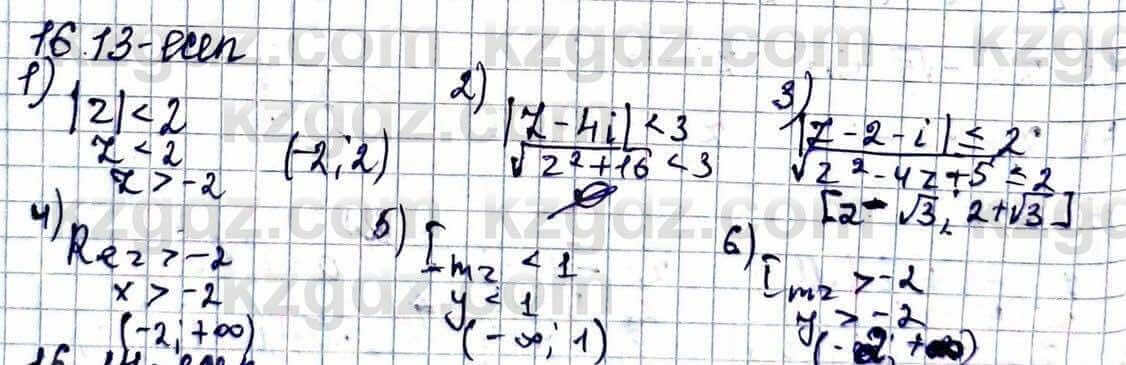 16.13-есеп
1) |z| < 2
z < 2
z > -2
(-2; 2)
2) |z - 4i| < 3
√z² + 16 < 3
∅
3) |z - 2 - i| ≤ 2
√z² - 4z + 5 ≤ 2
[2 - √3; 2 + √3]
4) Re z > -2
x > -2
(-2; +∞)
5) Im z < 1
y < 1
(-∞; 1)
6) Im z > -2
y > -2
(-2; +∞)
kzgdz.com kzgdz.com kzgdz.com